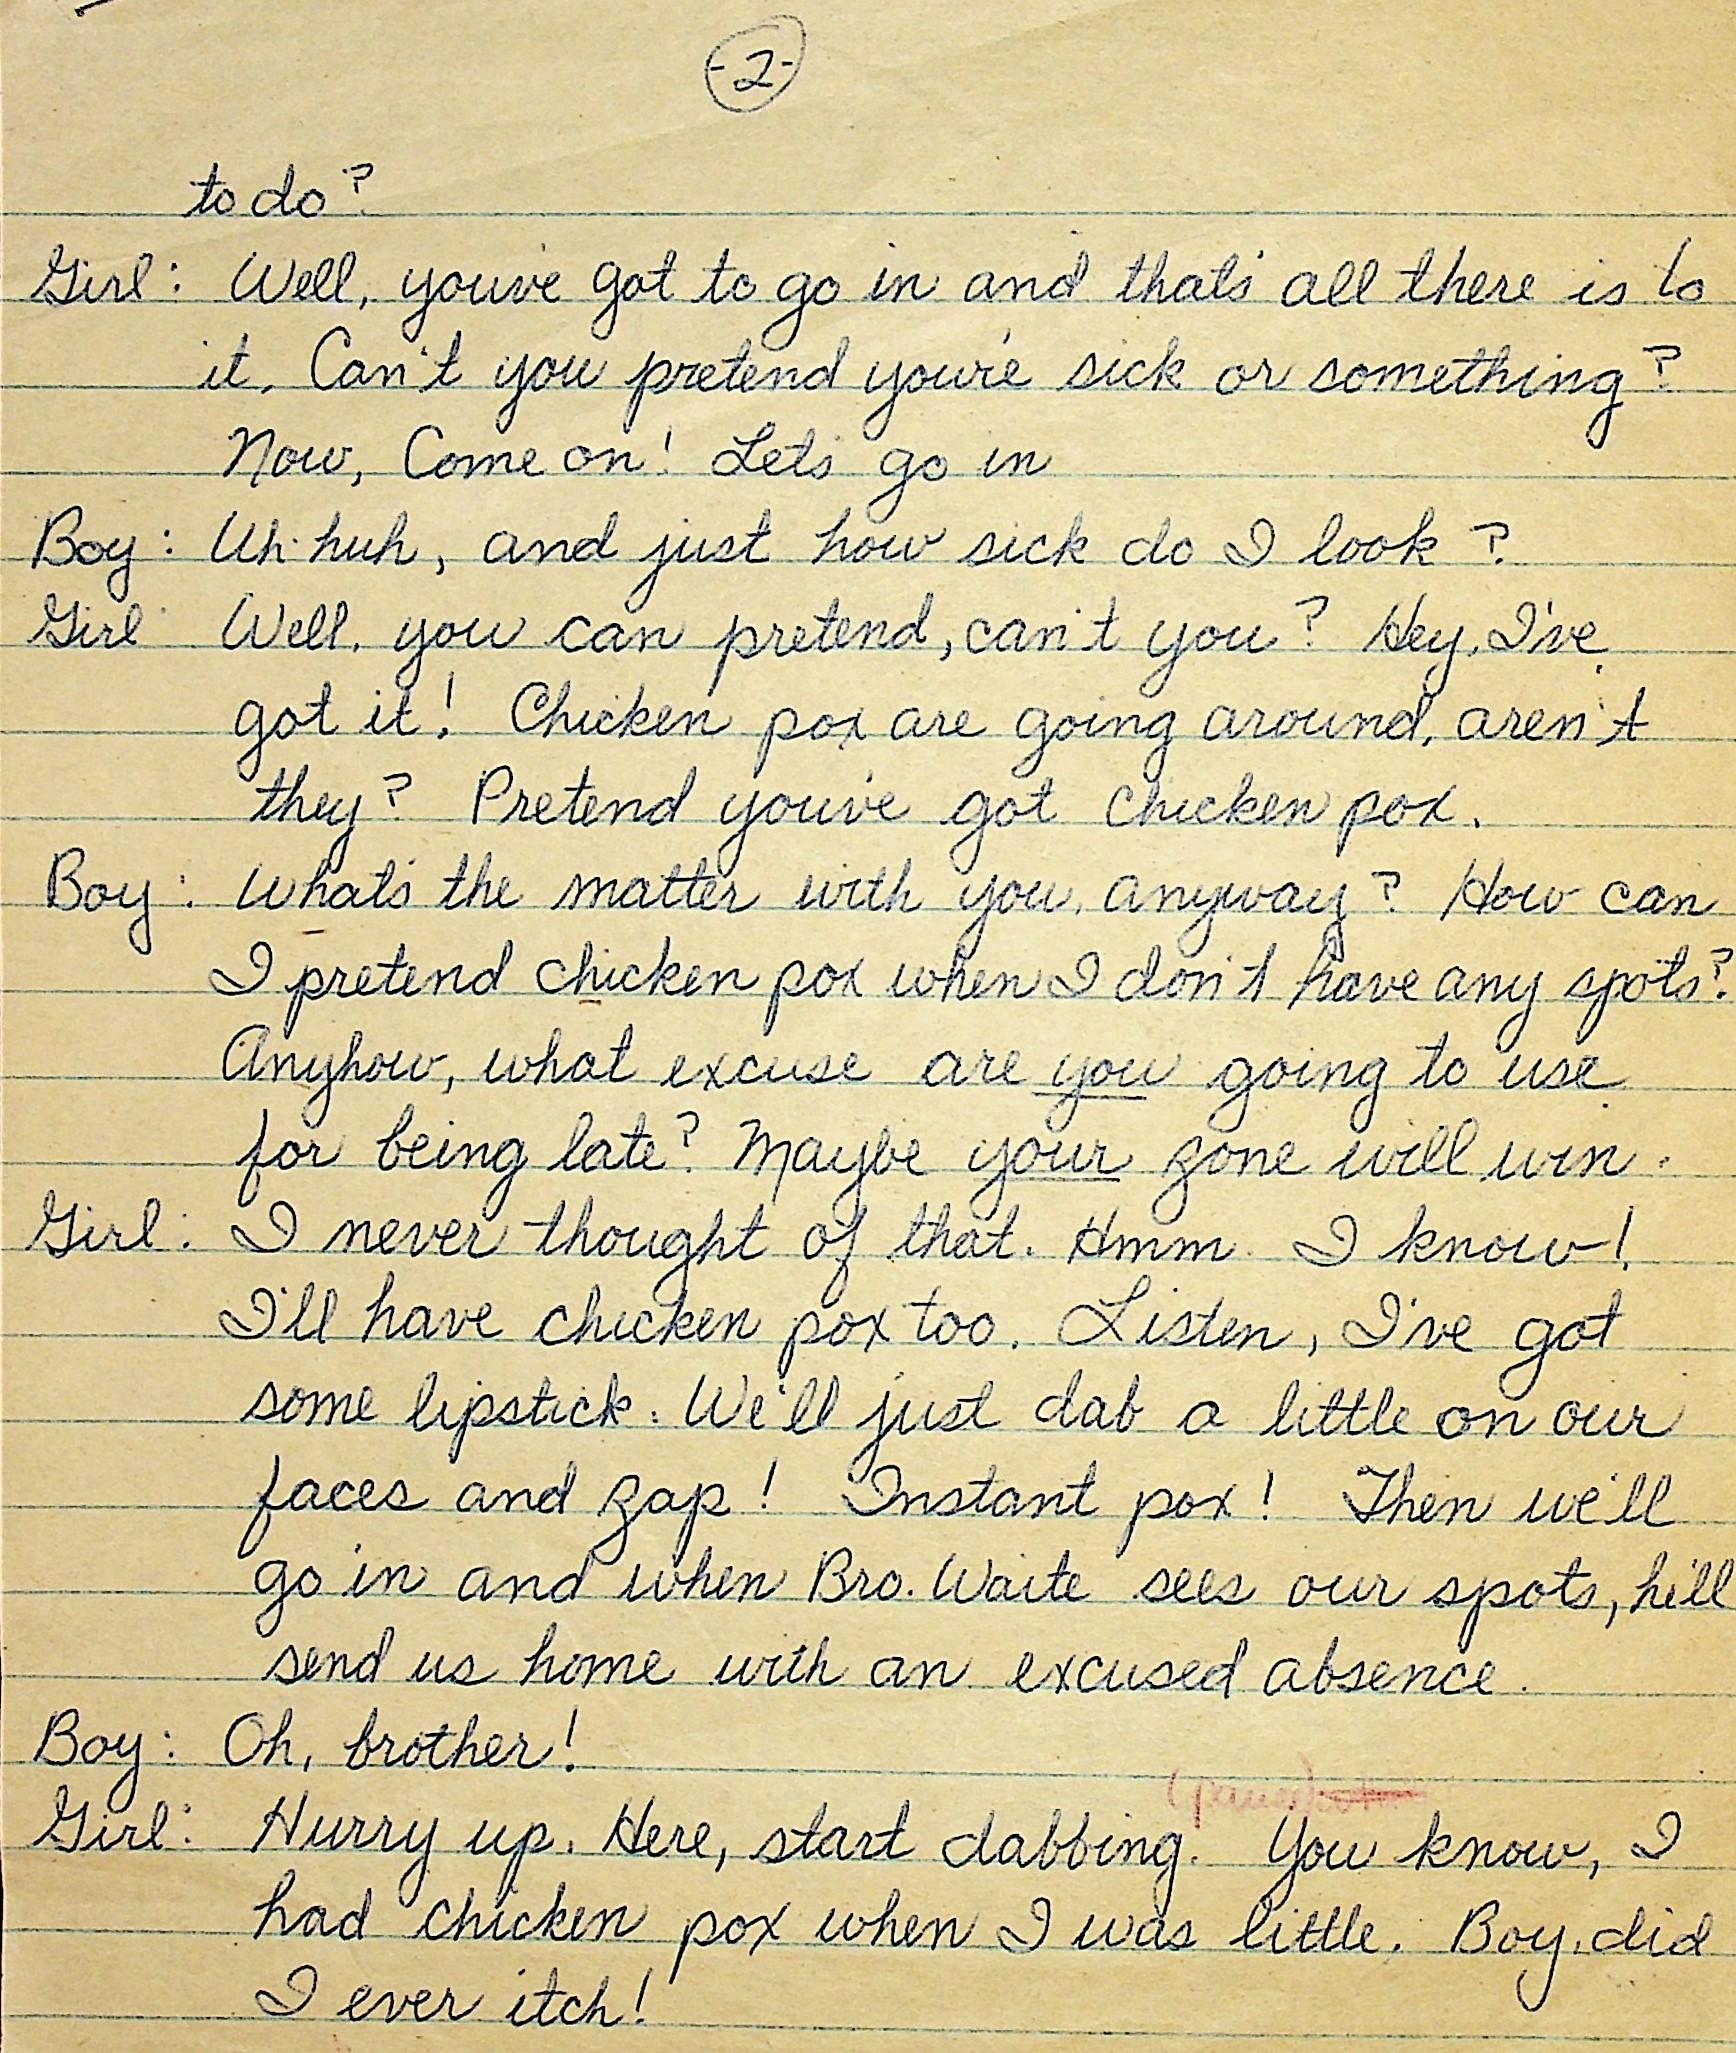 -2-
to do?
Girl: Well, you've got to go in and that's all there is to
it. Can't you pretend you're sick or something?
Now, Come on! Let's go in
Boy: Uh-huh, and just how sick do I look?
Girl: Well, you can pretend, can't you? Hey, I've
got it! Chicken pox are going around, aren't
they? Pretend you've got chicken pox.
Boy: What's the matter with you, anyway? How can
I pretend chicken pox when I don't have any spots?
Anyhow, what excuse are you going to use
for being late? Maybe your zone will win.
Girl: I never thought of that. Hmm. I know!
I'll have chicken pox too. Listen, I've got
some lipstick. We'll just dab a little on our
faces and zap! Instant pox! Then we'll
go in and when Bro. Waite sees our spots, he'll
send us home with an excused absence.
Boy: Oh, brother!
(pause)
Girl: Hurry up. Here, start dabbing! You know, I
had chicken pox when I was little. Boy, did
I ever itch!